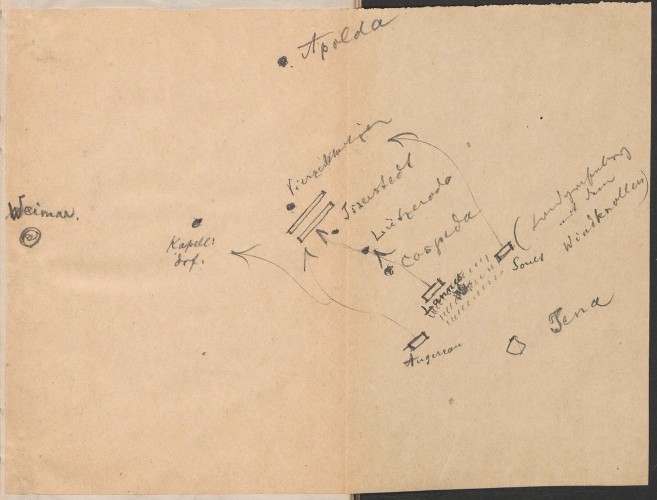 Apolda
Vierzehnheiligen
Isserstedt
Weimar.
Lützeroda
Kapell:
dorf.
Cospeda
(Landgrafenberg
mit dem
Windknollen)
Soult
Lannes
Jena
Augereau